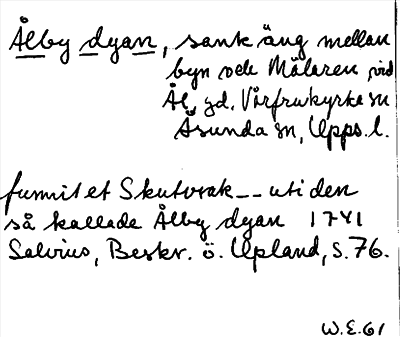 Ålby dyan, sank äng mellan
byn och Mälaren vid
Ål, gd. Vårfrukyrke sn
Åsunda sn, Upps. l.
funnit et Skutvrak -- uti den
så kallade Ålby dyan 1741
Salvius, Beskr. ö. Upland, S. 76.
W.E. 61